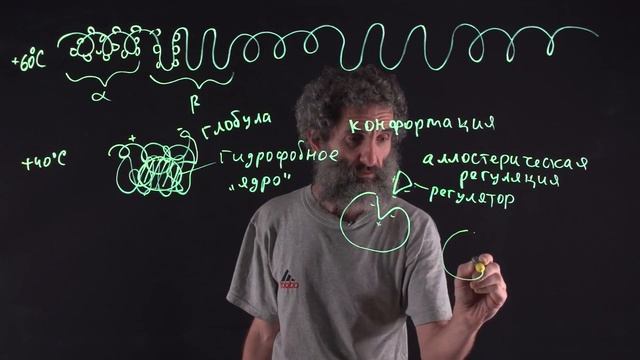 +60°C
α
β
+40°C
глобула
гидрофобное
„ядро"
конформация
аллостерическая
регуляция
регулятор